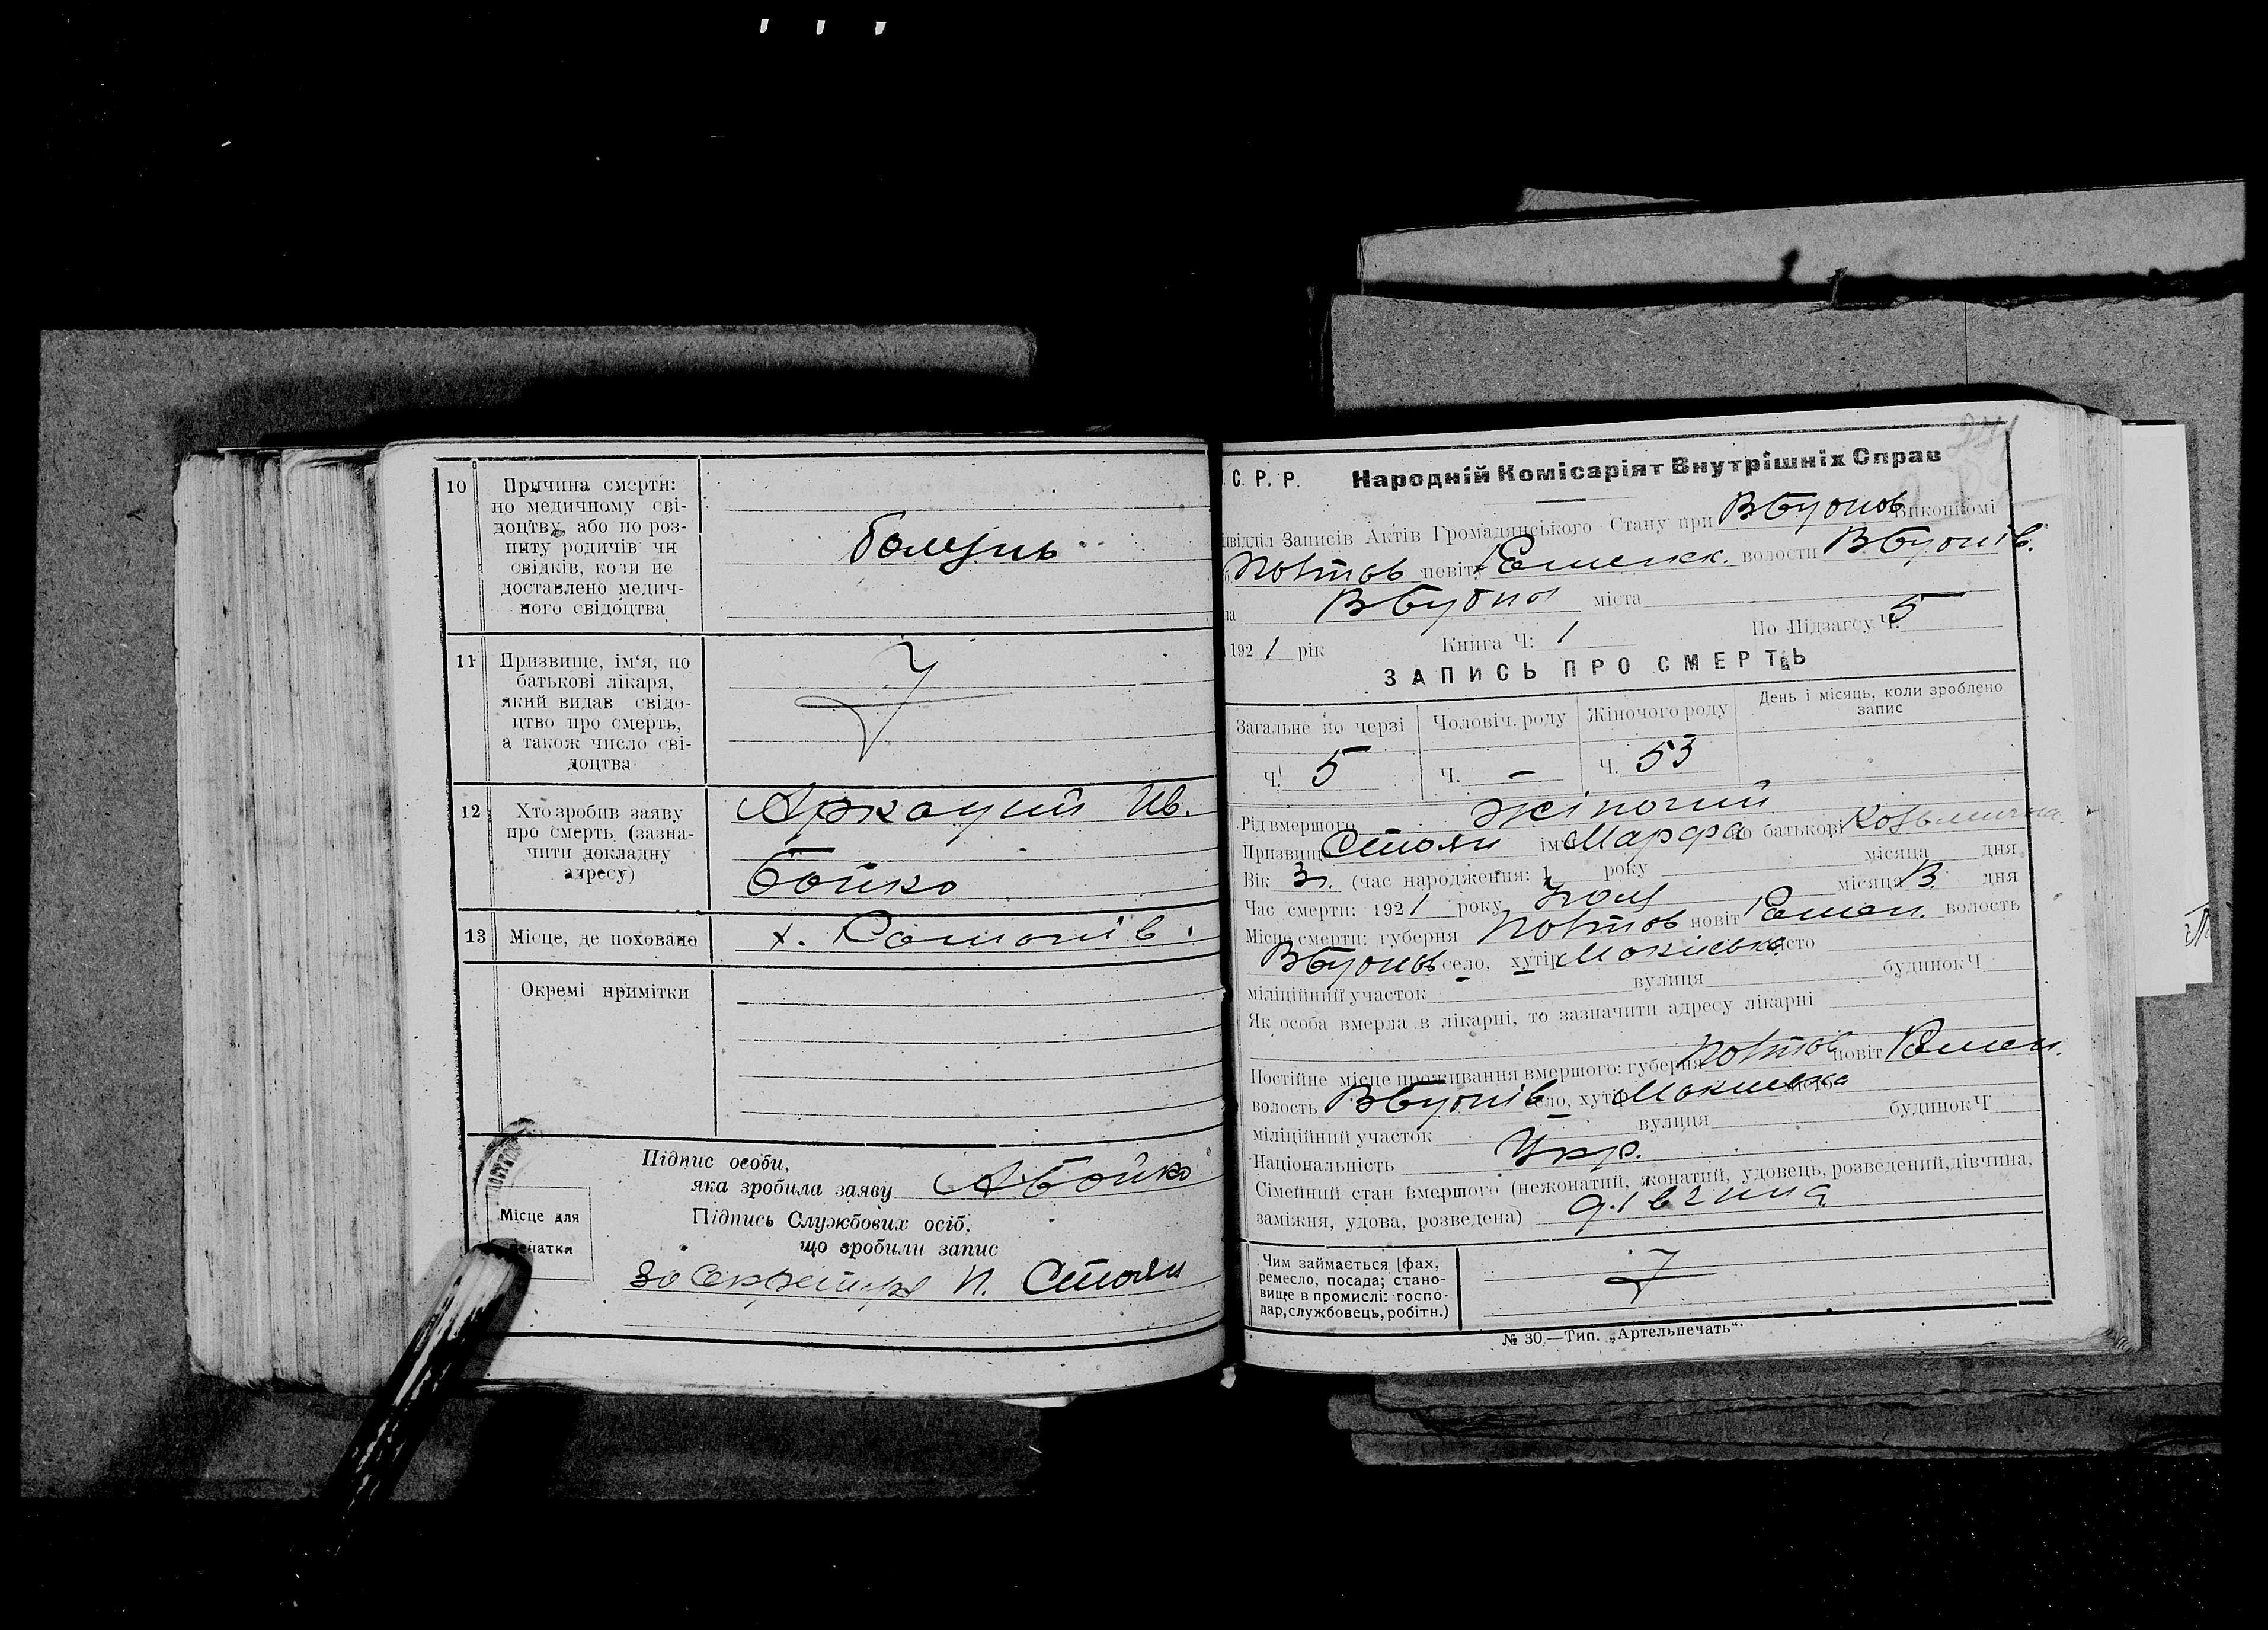 10 Причина смерти:
по медичному сві-
доцтву, або по роз-
питу родичів чи
свідків, коли не
доставлено медич-
ного свідоцтва
болезнь
11 Призвище, ім‘я, по
батькові лікаря,
який видав свідо-
цтво про смерть,
а також число сві-
доцтва
12 Хто зробив заяву
про смерть (зазна-
чити докладну
адресу)
Аркадий Ив.
Бойко
13 Місце, де поховано
х.
Окремі примітки
Підпис особи,
яка зробила заяву АБойко
Місце для
печатки
Підпись Службових осіб,
що зробили запис
За Секретаря П. Стоян
С. Р. Р. Народній Комісаріят Внутрішніх Справ
двідділ Записів Актів Громадянського Стану при виконкомі
Полтов повіту волости
міста
1921 рік Книга Ч: 1 По Підзагсу Ч. 5
ЗАПИСЬ ПРО СМЕРТЬ
Загальне по черзі Чоловіч. роду Жіночого роду День і місяць, коли зроблено
запис
Ч. 5 Ч. – Ч. 53
Рід вмершого жіночий
Призвище Стоян ім Марфа по батькові Козьминична
Вік 3 г. (час народження: 1 року місяця дня
Час смерти: 1921 року місяця дня
Місце смерти: губерня Полтов повіт Ромен. волость
село, хутір місто
міліційний участок вулиця будинок Ч
Як особа вмерла в лікарні, то зазначити адресу лікарні
Постійне місце проживання вмершого: губерня Полтов повіт Ромен.
волость село, хутір місто
міліційний участок вулиця будинок Ч
Національність Укр.
Сімейний стан вмершого (нежонатий, жонатий, удовець, розведений, дівчина,
заміжня, удова, розведена) дівчина
Чим займається [фах,
ремесло, посада; стано-
вище в промислі: госпо-
дар, службовець, робітн.)
№ 30.—Тип. „Артельпечать“